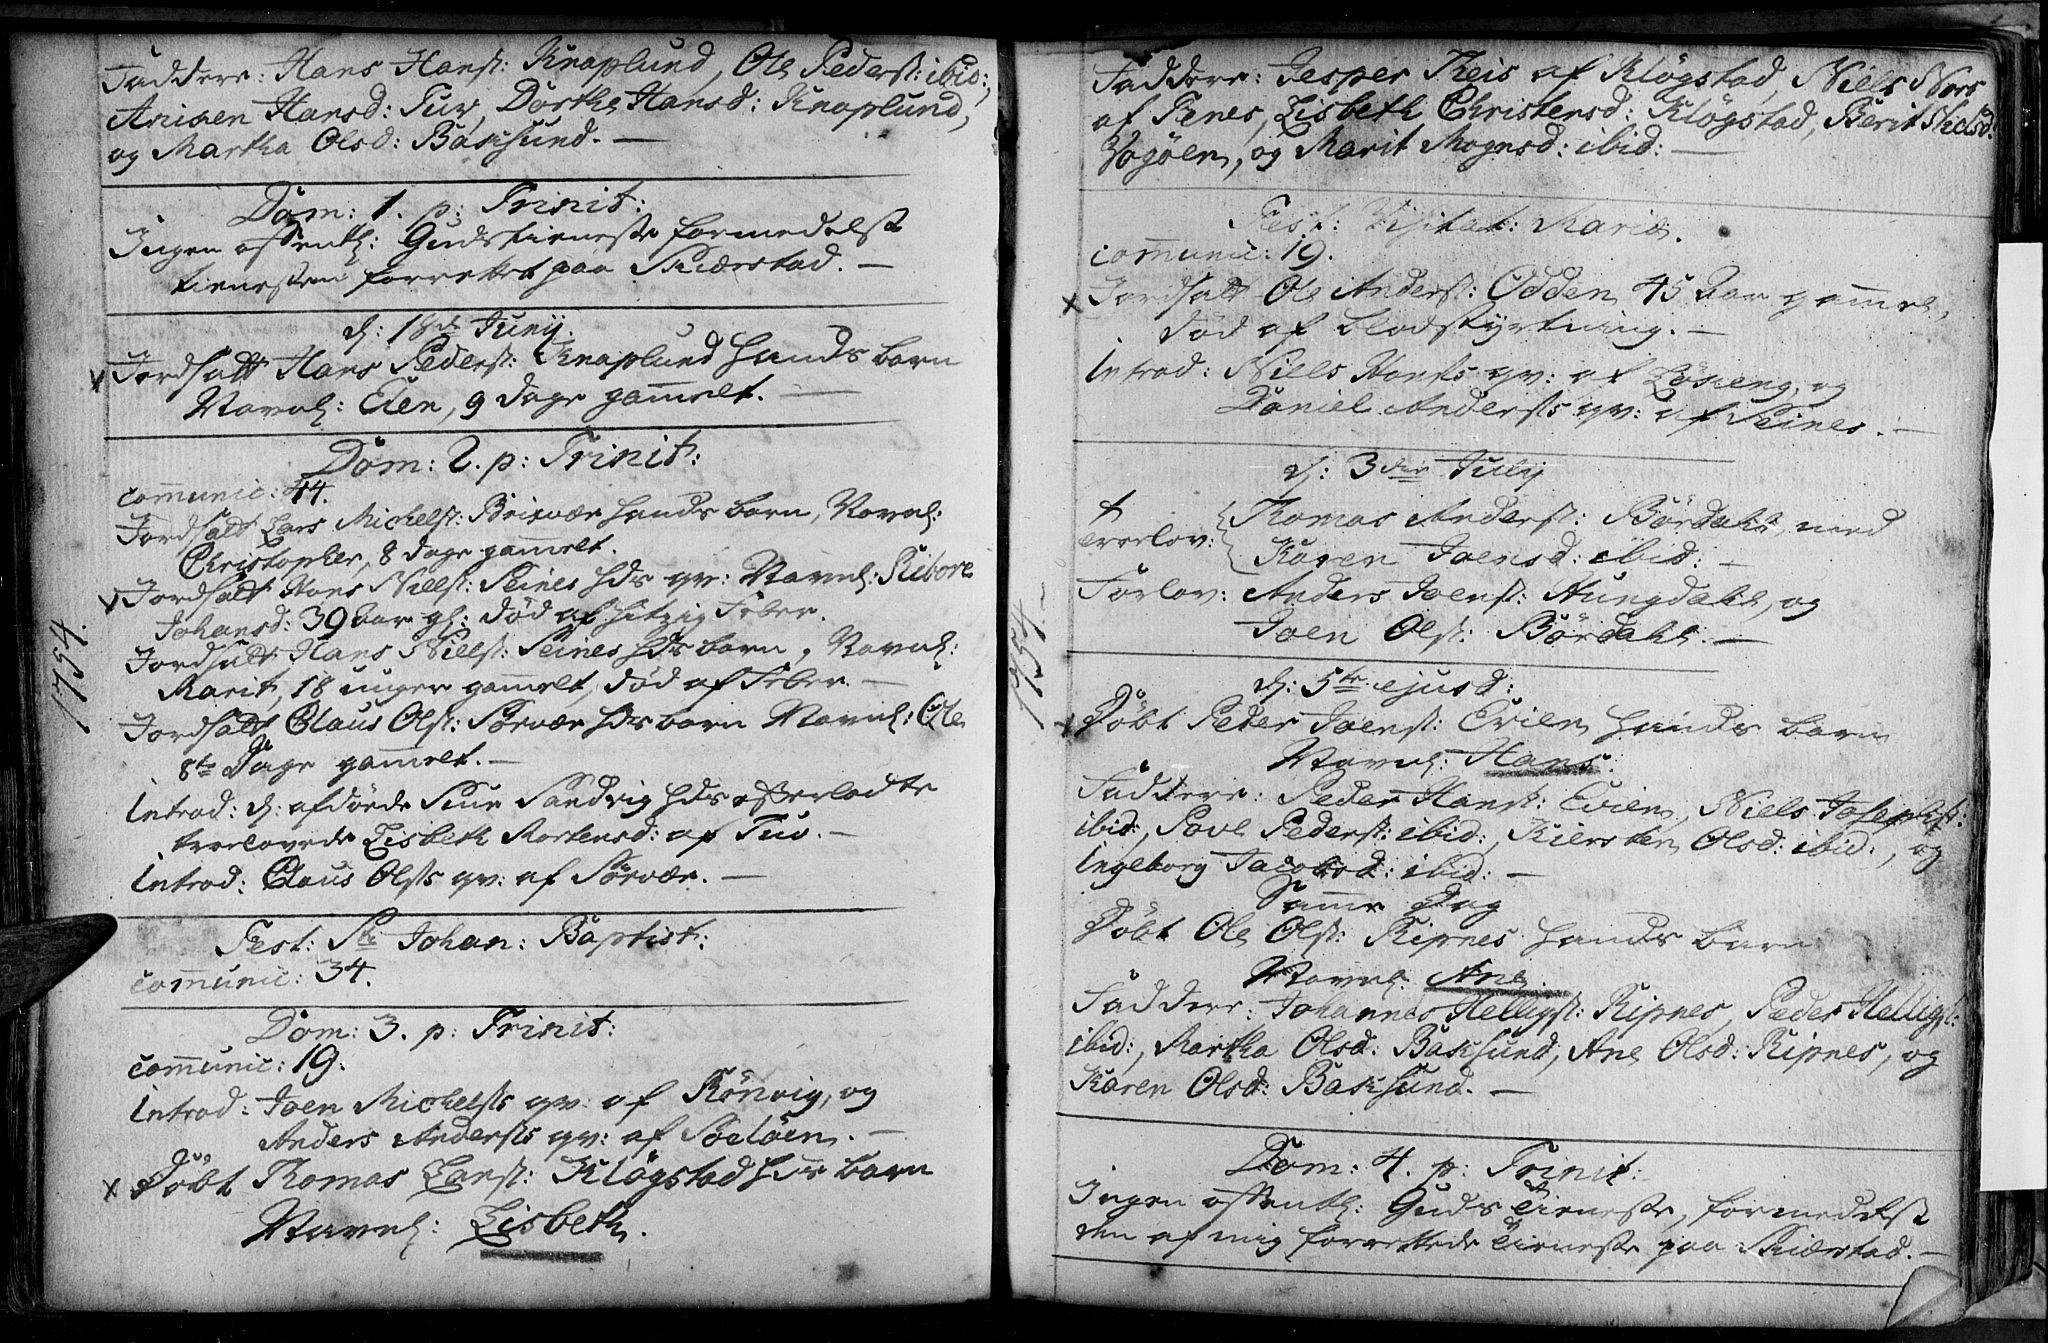 Faddere: Hans Hansß: Knaplund, Ole Pedersß: ibid:,
Anisen Hansd: Tuv, Dorthe Hansd: Knaplund,
og Martha Olsd: Baksund. —
Dom: 1. p: Trinit:
Ingen offentl: Gudstieneste formedelst
tienesten forrettet paa Skierstad. —
d: 18de Junij.
Jordsatt Hans Pedersß: Knaplund hands barn
Navnl: Elen, 9 dage gammelt. —
Dom: 2. p: Trinit:
communic: 44.
Jordsatt Lars Michelsß: Brixvær hands barn, Navnl:
Christopher, 8 dage gammelt.
Jordsatt Hans Nielsß: Seines hds qv: Navnl: Rebore
Johansd: 39 aar gl: død af hitzig Feber.
Jordsatt Hans Nielsß: Seines hds barn, Navnl:
Marit, 18 uger gammelt, død af Feber. —
Jordsatt Claus Olsß: Sørvær hds barn Navnl: Ole
8te Dage gammelt. —
Introd: d: afdøde Siur Sandvig hds efterladte
trolovede Lisbeth Mortensd: af Tuv. —
Introd: Claus Olsßs qv: af Sørvær. —
1754.
Fest: Sti Johan: Baptist:
communic: 34.
Dom: 3. p: Trinit:
communic: 19.
Introd: Joen Michelsßs qv: af Rönvig, og
Anders Andersßs qv: af Soeløen. —
Döbt Thomas Larsß: Klögstad hds barn
Navnl: Lisbeth.
Faddere: Jesper Keis af Klögstad, Niels Nors
af Fenes, Lisbeth Christensd: Klögstad, Berit
Vogöen, og Marit Mognsd: ibid: —
Fest: Visitat: Mariæ.
communic: 19.
Jordsatt Ole Andersß: Odden 45 Aar gammel,
død af blodstyrtning. —
Introd: Niels Hansßs qv: af Löpeng, og
Daniel Andersßs qv: af Seines. —
d: 3die Julij
+
trolov: Thomas Andersß: Bördahl, med
Karen Joensd: ibid: —
Forlov: Anders Joensß: Hungdahl, og
Joen Olsß: Bördahl —
1754 —
d: 5te ejusd:
Döbt Peder Joensß: Evien hands barn
Navnl: Hans.
Faddere: Peder Hansß: Evien, Niels Josephsß:
ibid:, Povl Pedersß: ibid:, Kiersten Olsd: ibid:, og
Ingeborg Jacobsd: ibid: —
Samme Dag
Döbt Ole Olsß: Ripnes hands barn
Navnl: Ane.
Faddere: Johannes Helligsß: Ripnes, Peder Helligsß:
ibid:, Martha Olsd: Baksund, Ane Olsd: Ripnes, og
Karen Olsd: Baksund. —
Dom: 4. p: Trinit:
Ingen offentl: Guds Tieneste, formedelst
den af mig forrettede Tieneste paa Skierstad. —